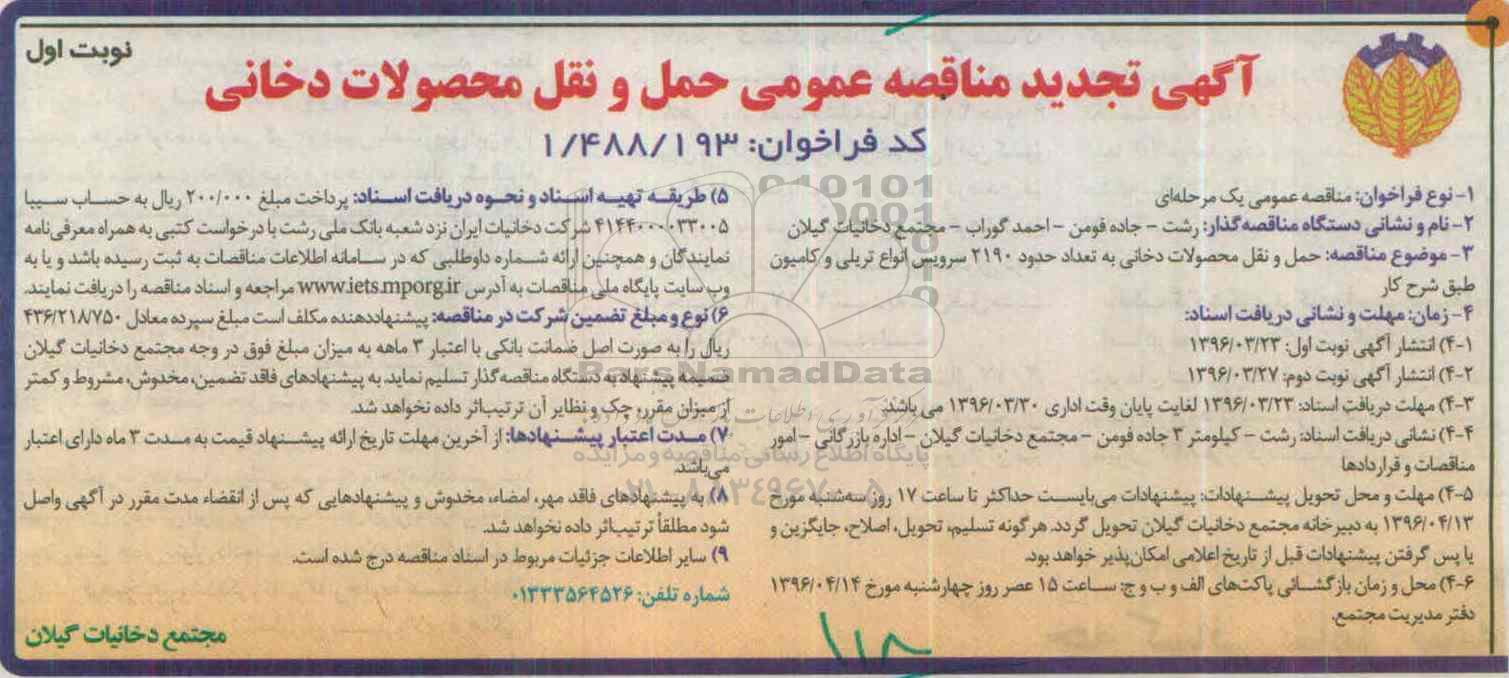 نوبت اول
آگهی تجدید مناقصه عمومی حمل و نقل محصولات دخانی
کد فراخوان: ۱/۴۸۸/۱۹۳
۱- نوع فراخوان: مناقصه عمومی یک مرحله‌ای
۲- نام و نشانی دستگاه مناقصه‌گذار: رشت - جاده فومن - احمد گوراب - مجتمع دخانیات گیلان
۳- موضوع مناقصه: حمل و نقل محصولات دخانی به تعداد حدود ۲۱۹۰ سرویس انواع تریلی و کامیون
طبق شرح کار
۴- زمان: مهلت و نشانی دریافت اسناد:
۴-۱) انتشار آگهی نوبت اول: ۱۳۹۶/۰۳/۲۳
۴-۲) انتشار آگهی نوبت دوم: ۱۳۹۶/۰۳/۲۷
۴-۳) مهلت دریافت اسناد: ۱۳۹۶/۰۳/۲۳ لغایت پایان وقت اداری ۱۳۹۶/۰۳/۳۰ می باشد.
۴-۴) نشانی دریافت اسناد: رشت - کیلومتر ۳ جاده فومن - مجتمع دخانیات گیلان - اداره بازرگانی - امور
مناقصات و قراردادها
۴-۵) مهلت و محل تحویل پیشنهادات: پیشنهادات می‌بایست حداکثر تا ساعت ۱۷ روز سه‌شنبه مورخ
۱۳۹۶/۰۴/۱۳ به دبیرخانه مجتمع دخانیات گیلان تحویل گردد. هرگونه تسلیم، تحویل، اصلاح، جایگزین و
یا پس گرفتن پیشنهادات قبل از تاریخ اعلامی امکان‌پذیر خواهد بود.
۴-۶) محل و زمان بازگشائی پاکت‌های الف و ب و ج: ساعت ۱۵ عصر روز چهارشنبه مورخ ۱۳۹۶/۰۴/۱۴
دفتر مدیریت مجتمع.
۵) طریقه تهیه اسناد و نحوه دریافت اسناد: پرداخت مبلغ ۲۰۰/۰۰۰ ریال به حساب سیبا
۴۱۴۴۰۰۰۰۳۳۰۰۵ شرکت دخانیات ایران نزد شعبه بانک ملی رشت با درخواست کتبی به همراه معرفی‌نامه
نمایندگان و همچنین ارائه شماره داوطلبی که در سامانه اطلاعات مناقصات به ثبت رسیده باشد و یا به
وب سایت پایگاه ملی مناقصات به آدرس www.iets.mporg.ir مراجعه و اسناد مناقصه را دریافت نمایند.
۶) نوع و مبلغ تضمین شرکت در مناقصه: پیشنهاددهنده مکلف است مبلغ سپرده معادل ۴۳۶/۲۱۸/۷۵۰
ریال را به صورت اصل ضمانت بانکی با اعتبار ۳ ماهه به میزان مبلغ فوق در وجه مجتمع دخانیات گیلان
ضمیمه پیشنهاد به دستگاه مناقصه‌گذار تسلیم نماید. به پیشنهادهای فاقد تضمین، مخدوش، مشروط و کمتر
از میزان مقرر، چک و نظایر آن ترتیب‌اثر داده نخواهد شد.
۷) مدت اعتبار پیشنهادها: از آخرین مهلت تاریخ ارائه پیشنهاد قیمت به مدت ۳ ماه دارای اعتبار
می‌باشد.
۸) به پیشنهادهای فاقد مهر، امضاء، مخدوش و پیشنهادهایی که پس از انقضاء مدت مقرر در آگهی واصل
شود مطلقاً ترتیب‌اثر داده نخواهد شد.
۹) سایر اطلاعات جزئیات مربوط در اسناد مناقصه درج شده است.
شماره تلفن: ۰۱۳۳۳۵۶۴۵۲۶
مجتمع دخانیات گیلان
ParsNamadData
پایگاه اطلاع رسانی مناقصه و مزایده
۰۲۱-۸۸۳۴۹۶۷۰-۵
۱۱۸